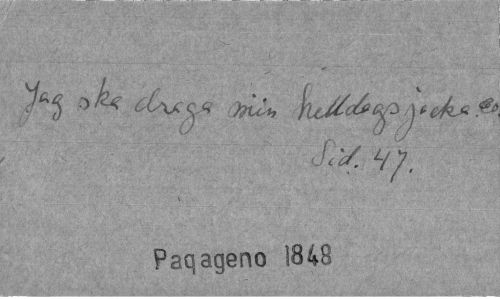 Jag ska draga min helldagsjacka co.
Sid. 47.
Paqageno 1848